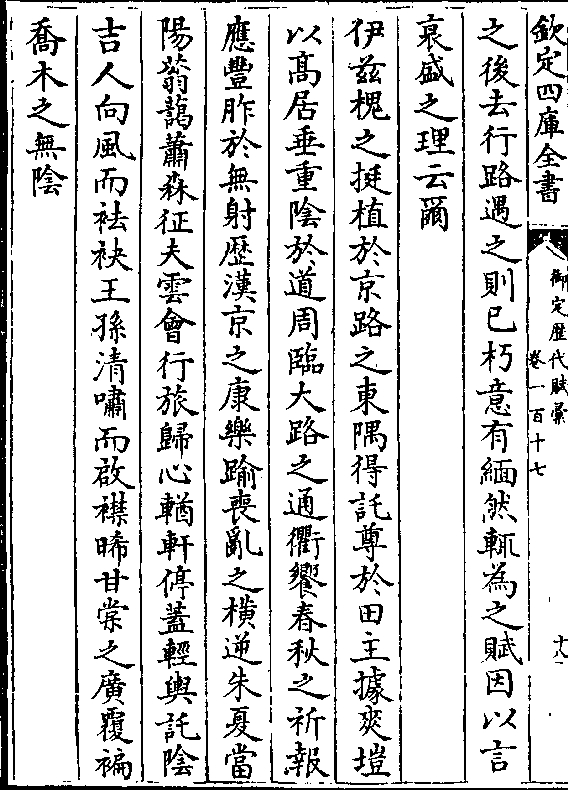 欽定四庫全書
御定歷代賦彙
卷一百十七
之後去行路遇之則已朽意有緬然輒為之賦因以言
衰盛之理云爾
伊兹槐之挺植於京路之東隅得託尊於田主據爽塏
以髙居垂重陰於道周臨大路之通衢饗春秋之祈報
應豐胙於無射歷漢京之康樂踰喪亂之横逆朱夏當
陽蓊藹蕭森征夫雲會行旅歸心輶軒停蓋輕輿託陰
吉人向風而袪袂王孫清嘯而啟襟晞甘棠之廣覆褊
喬木之無陰